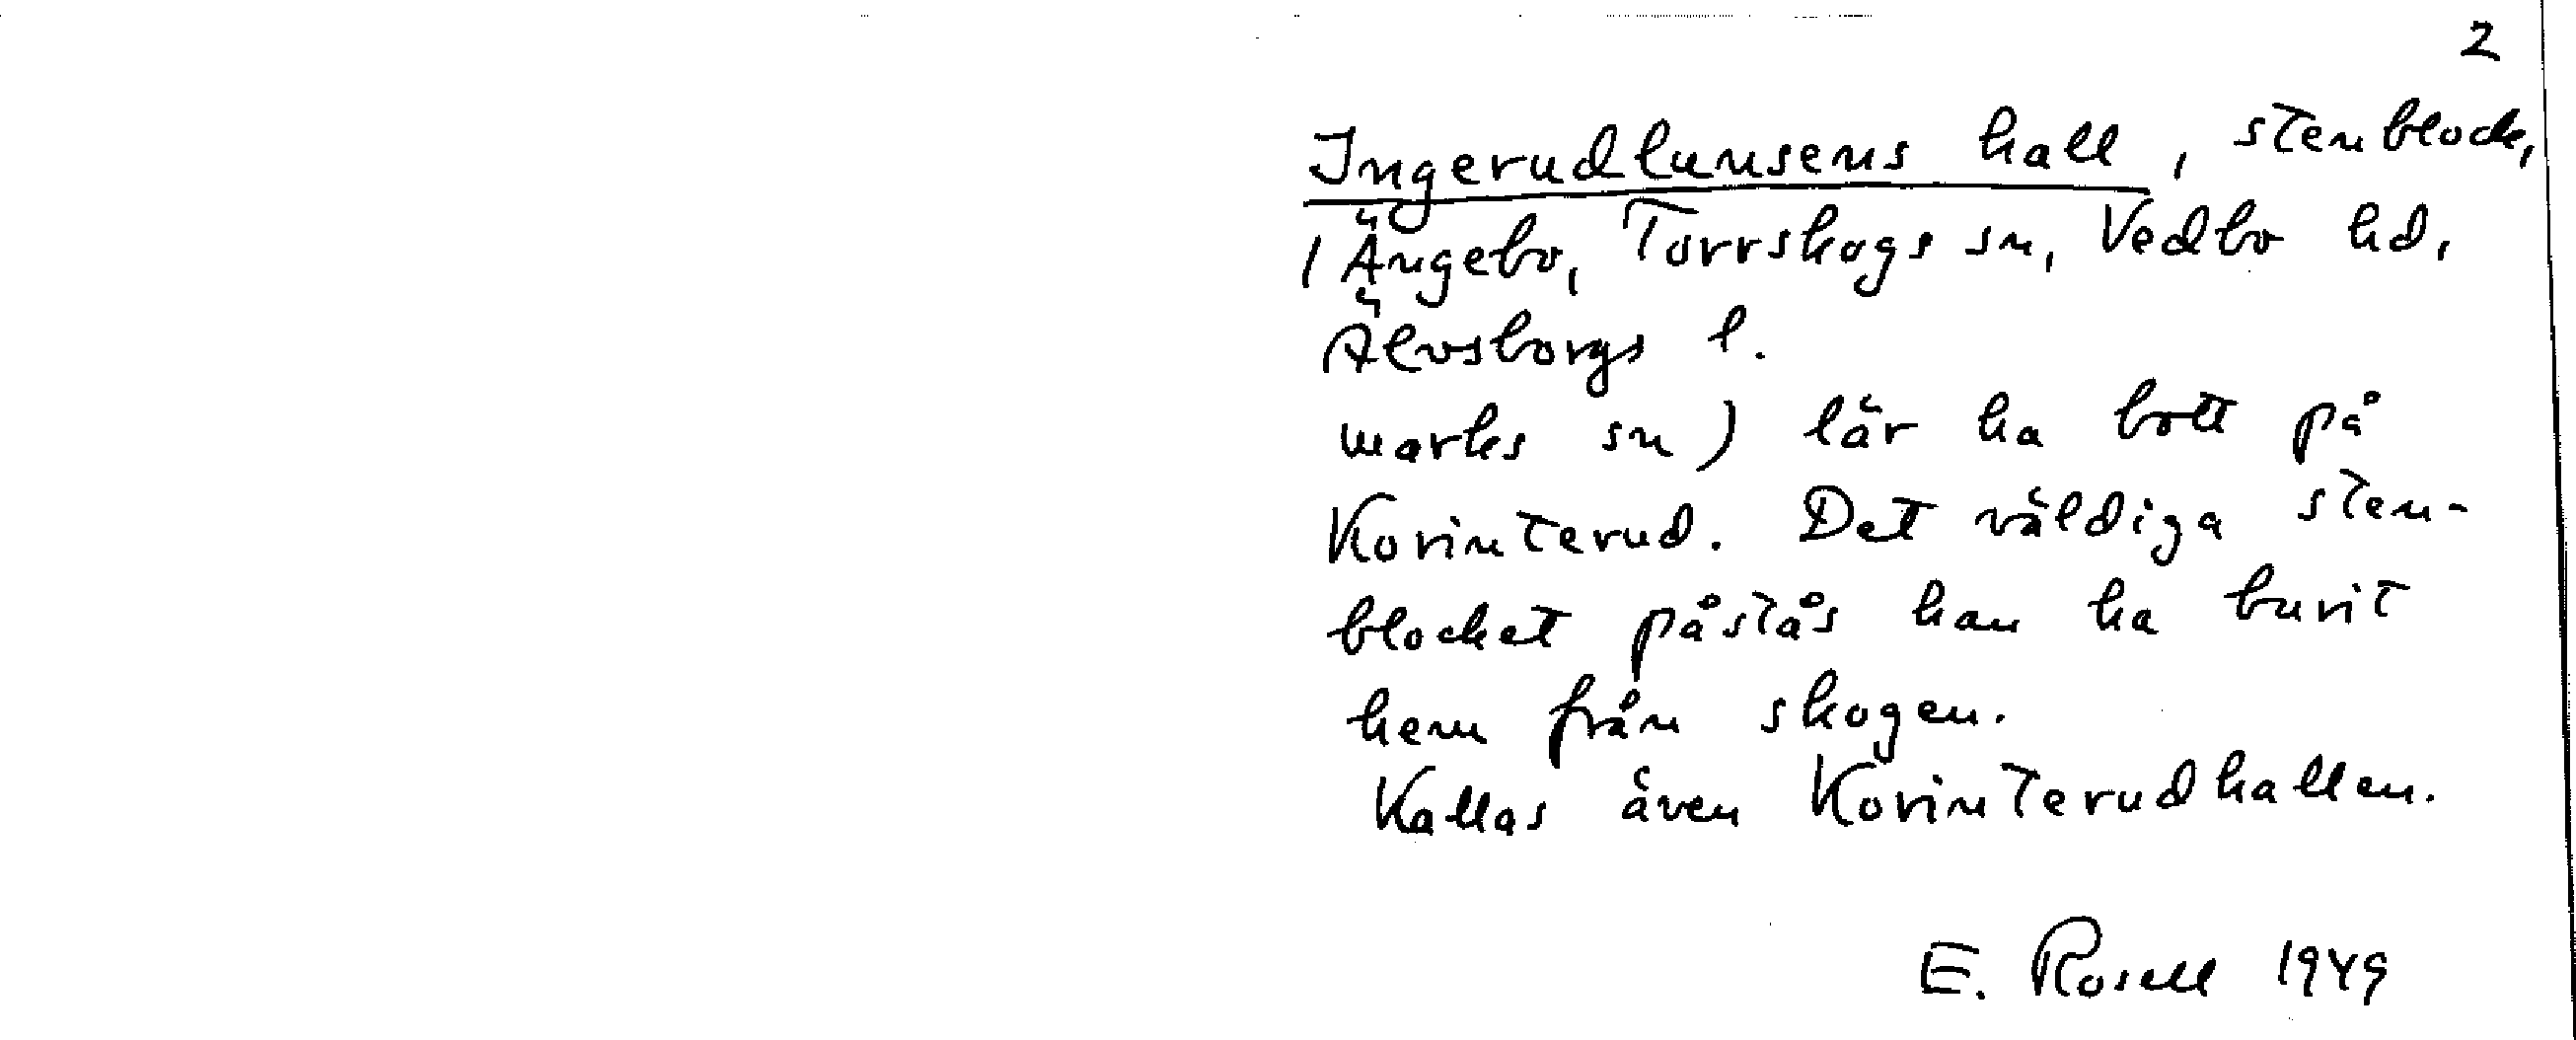 2
Ingerudlunsens hall, stenblock,
1 Ängebo, Torrskogs sn, Vedbo hd,
Älvsborgs l.
marks sn) lär ha bott på
Korinterud. Det väldiga sten-
blocket påstås han ha burit
hem från skogen.
Kallas även Korinterudhallen.
E. Rosell 1949